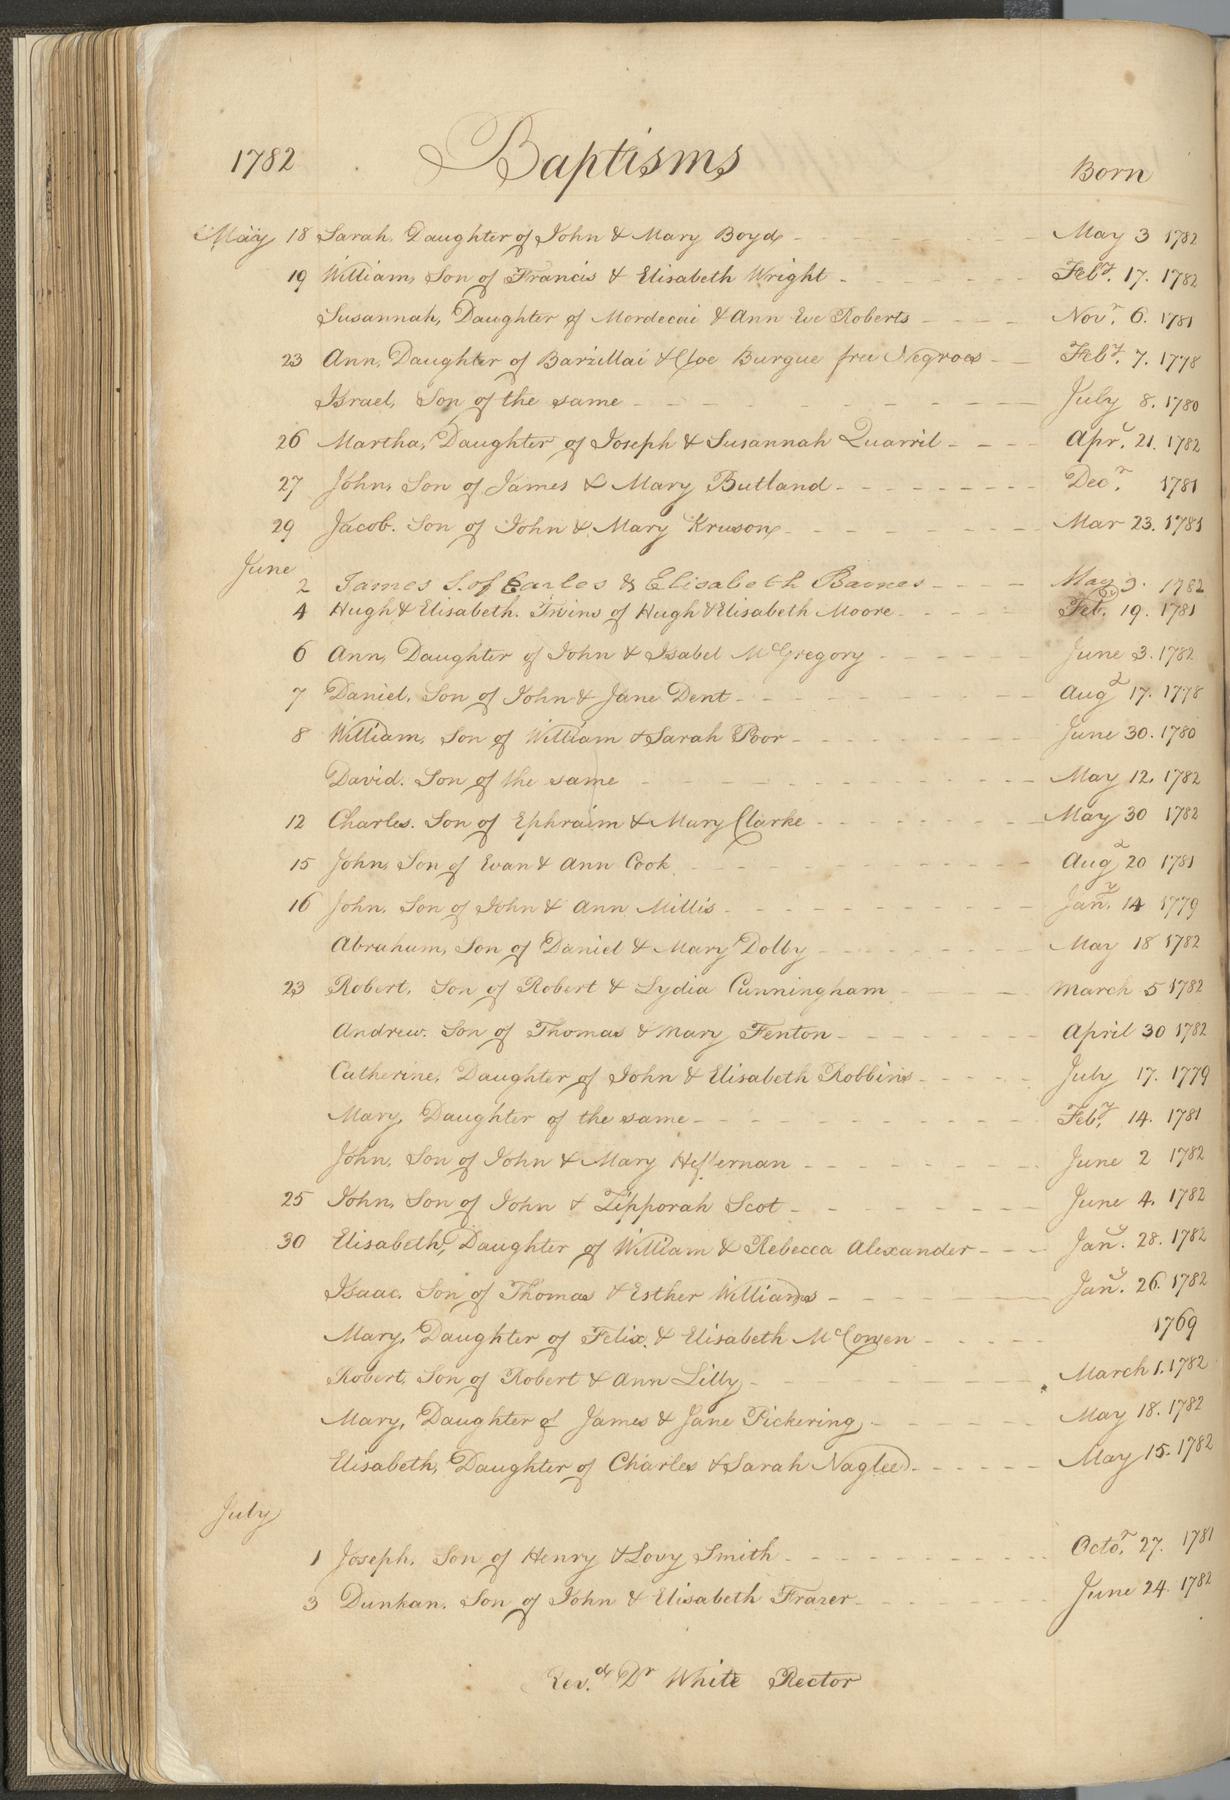 1782 Baptisms Born
May 18 Sarah, Daughter of John & Mary Boyd May 3 1782
19 William, Son of Francis & Elisabeth Wright Feby. 17. 1782
Susannah, Daughter of Mordecai & Ann Eve Roberts Novr. 6. 1781
23 Ann, Daughter of Barzillai & Cloe Burgue free Negroes Feby. 7. 1778
Israel, Son of the same July 8. 1780
26 Martha, Daughter of Joseph & Susannah Quarril Aprl. 21. 1782
27 John, Son of James & Mary Butland Decr. 1781
29 Jacob. Son of John & Mary Kruson Mar 23. 1781
June
2 James S. of Carles & Elisabeth Barnes May 9. 1782
4 Hugh & Elisabeth. Twins of Hugh & Elisabeth Moore Feb. 19. 1781
6 Ann, Daughter of John & Isabel McGregory June 3. 1782
7 Daniel, Son of John & Jane Dent Augt 17. 1778
8 William, Son of William & Sarah Poor June 30. 1780
David. Son of the same May 12. 1782
12 Charles. Son of Ephraim & Mary Clarke May 30 1782
15 John, Son of Evan & Ann Cook Augt 20 1781
16 John, Son of John & Ann Millis Jany. 14 1779
Abraham, Son of Daniel & Mary Dolby May 18 1782
23 Robert, Son of Robert & Lydia Cunningham March 5 1782
Andrew. Son of Thomas & Mary Fenton April 30 1782
Catherine, Daughter of John & Elisabeth Robbins July 17. 1779
Mary, Daughter of the same Feby. 14. 1781
John, Son of John & Mary Heffernan June 2 1782
25 John, Son of John & Zipporah Scot June 4. 1782
30 Elisabeth, Daughter of William & Rebecca Alexander Jany. 28. 1782
Isaac. Son of Thomas & Esther Williams Jany. 26. 1782
Mary, Daughter of Felix. & Elisabeth McCowen 1769
Robert, Son of Robert & Ann Lilly March 1. 1782
Mary, Daughter of James & Jane Pickering May 18. 1782
Elisabeth, Daughter of Charles & Sarah Naglee May 15. 1782
July
1 Joseph. Son of Henry & Lovy Smith Octor. 27. 1781
3 Dunkan. Son of John & Elisabeth Frazer June 24. 1782
Rev.d Dr White Rector